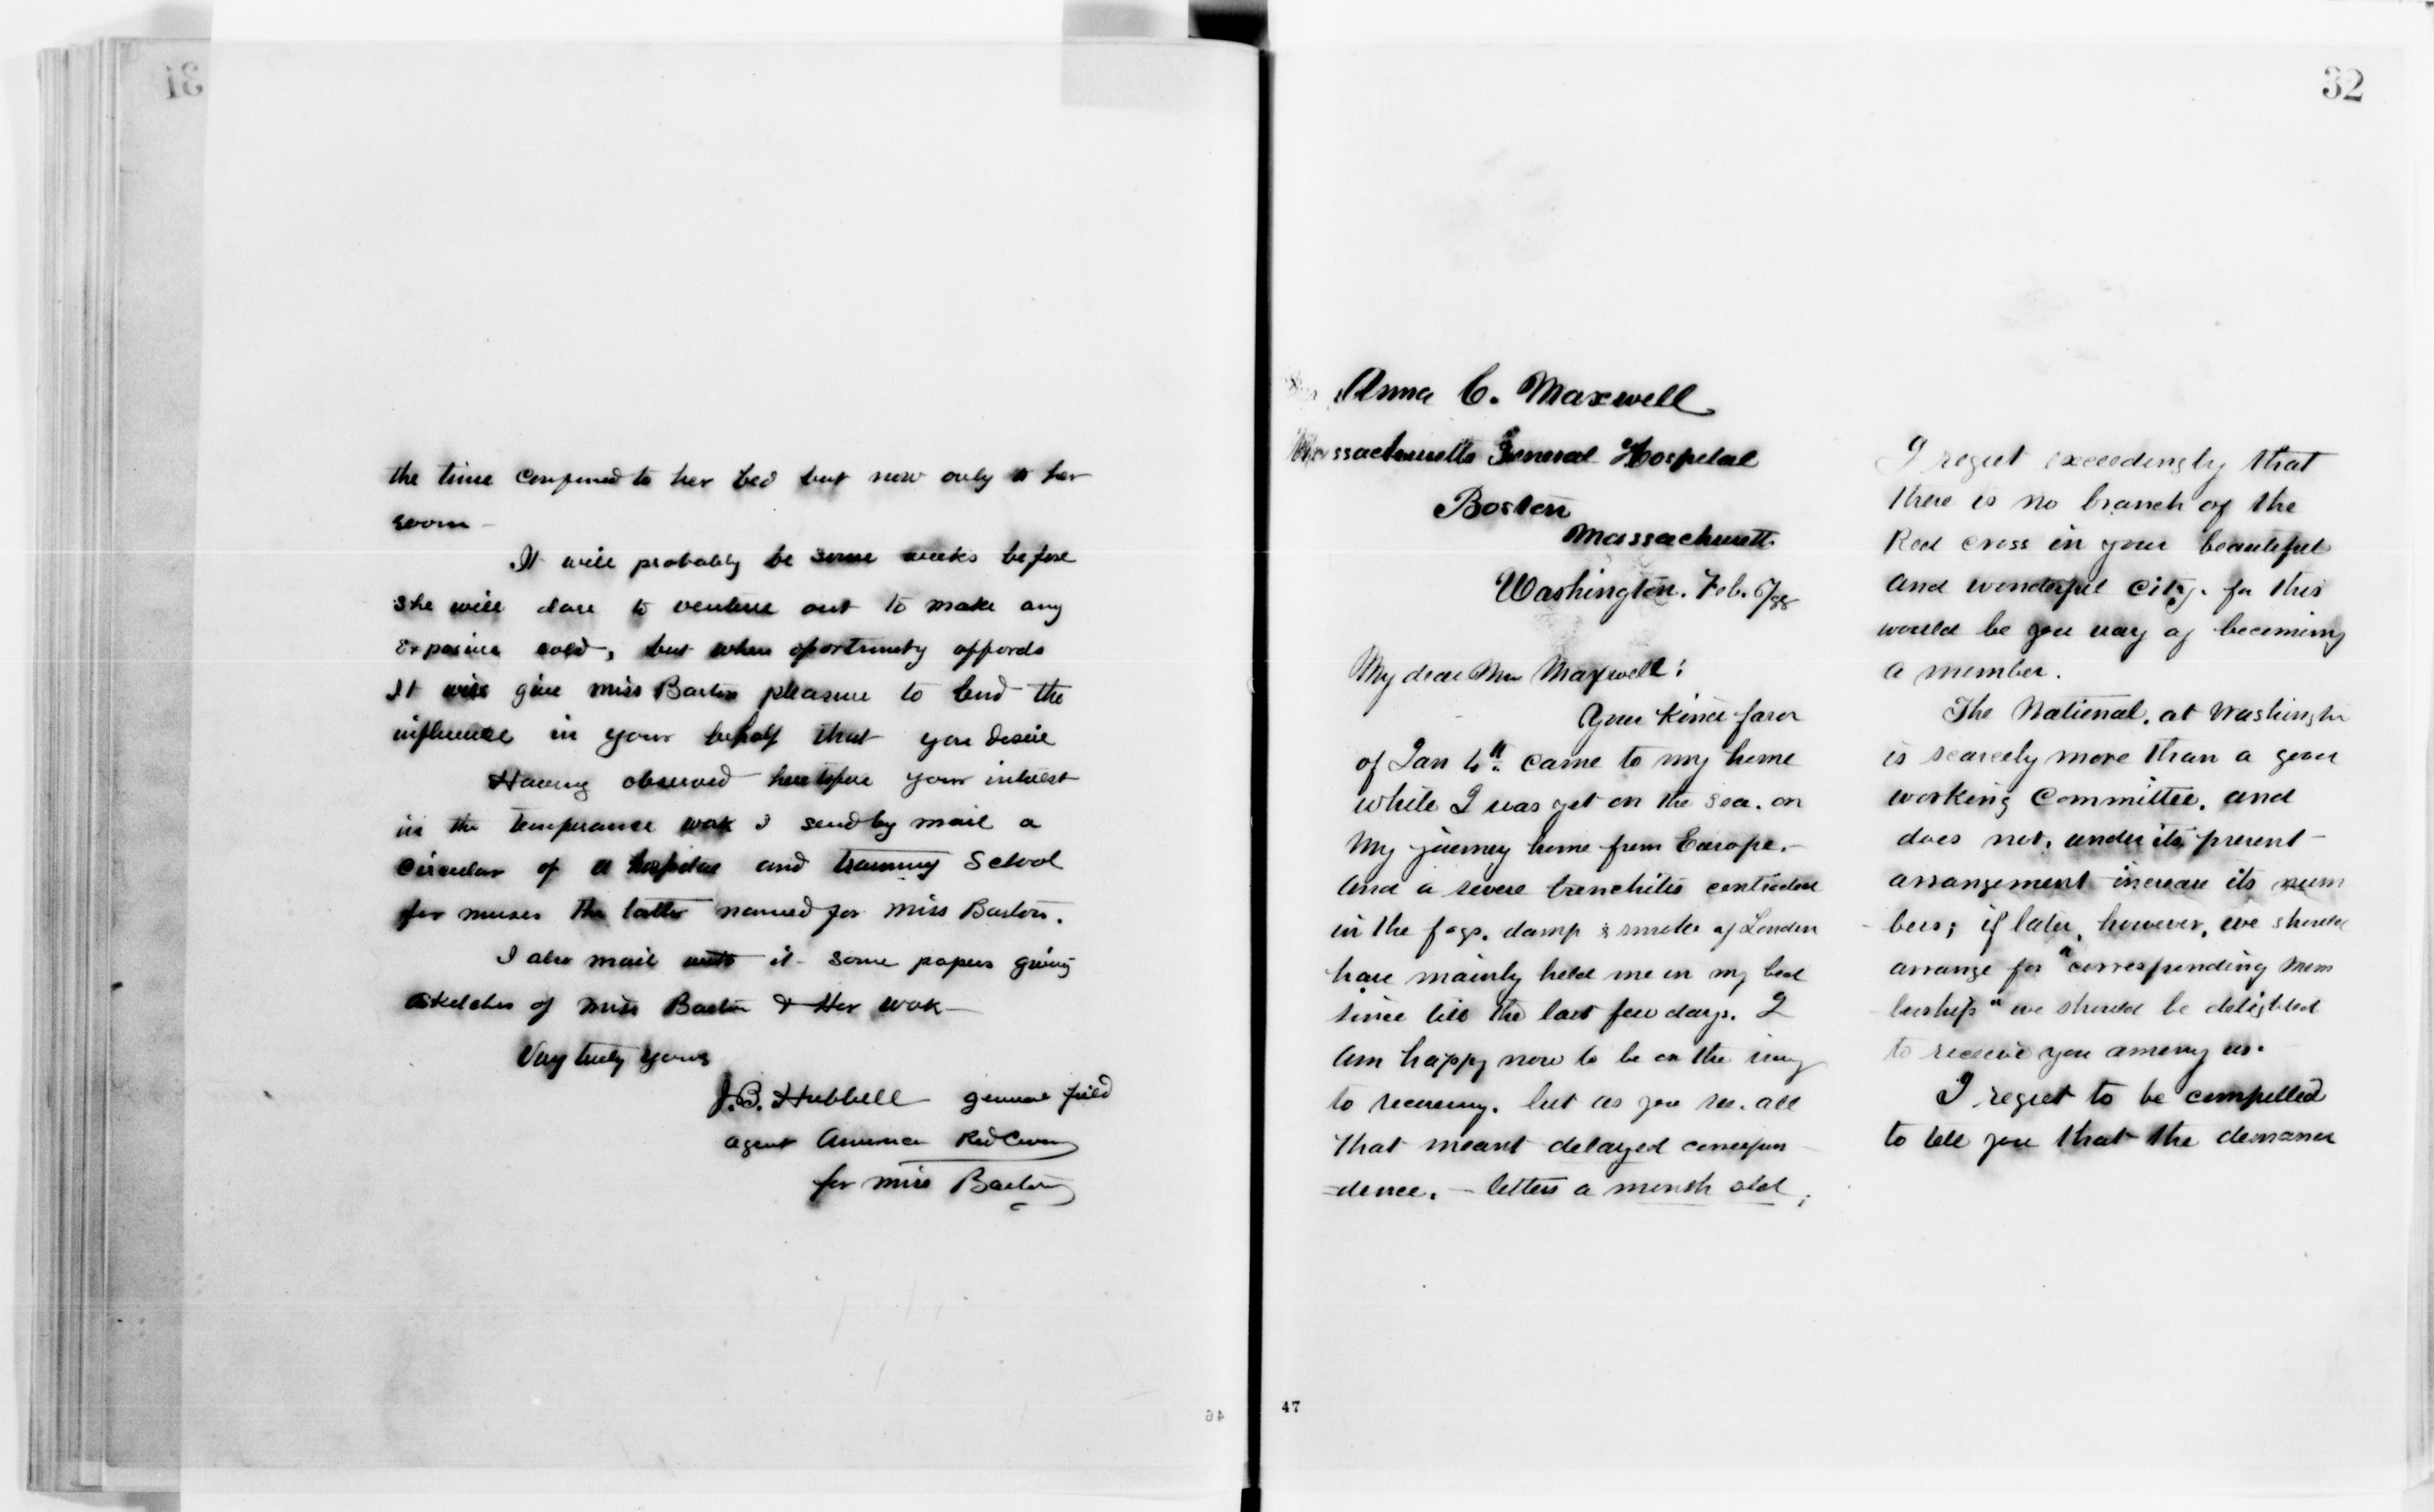 31
the time confined to her bed but now only to her
room –
It will probably be some weeks before
she will dare to venture out to make any
exposure, but when oportunity affords
It will give miss Barton pleasure to lend the
influence in your behalf that you desire
Having observed heretofore your interest
in the temperance work I send by mail a
circular of a hospital and training School
for nurses the latter named for Miss Barton.
I also mail with it some papers giving
sketches of Miss Barton & Her work –
Very truly yours
J.B. Hubbell general field
agent American Red Cross
for Miss Barton
46
32
Anna C. Maxwell
Massachusetts General Hospital
Boston
Massachusetts
Washington. Feb. 6/88
My dear Maxwell:
Your kind favor
of Jan came to my home
while I was yet on the sea. on
My journey home from Europe. –
and a severe bronchitis contracted
in the fogs. damp & smoke of London
have mainly held me in my bed
since till the last few days. I
am happy now to be on the way
to recovery. but as you see. all
that meant delayed correspon
=dence. – letters a month old;
I regret exceedingly that
there is no branch of the
Red cross in your beautiful
and wonderful city. for this
would be your way of becoming
a member.
The National. at Washington
is scarcely more than a good
working Committee. and
does not. under its present
arrangement increase its num
bers; if later, however, we should
arrange for "corresponding mem
bership" we should be delighted
to receive you among us.
I regret to be compelled
to tell you that the demand
47